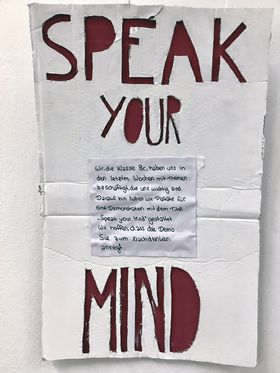 SPEAK
YOUR
Wir, die Klasse 8c, haben uns in
den letzten Wochen mit Themen
beschäftigt, die uns wichtig sind.
Darauf hin haben wir Plakate für
eine Demonstration mit dem Titel
„Speak your Mind" gestaltet.
Wir hoffen, dass die Demo
Sie zum Nachdenken
anregt.
MIND